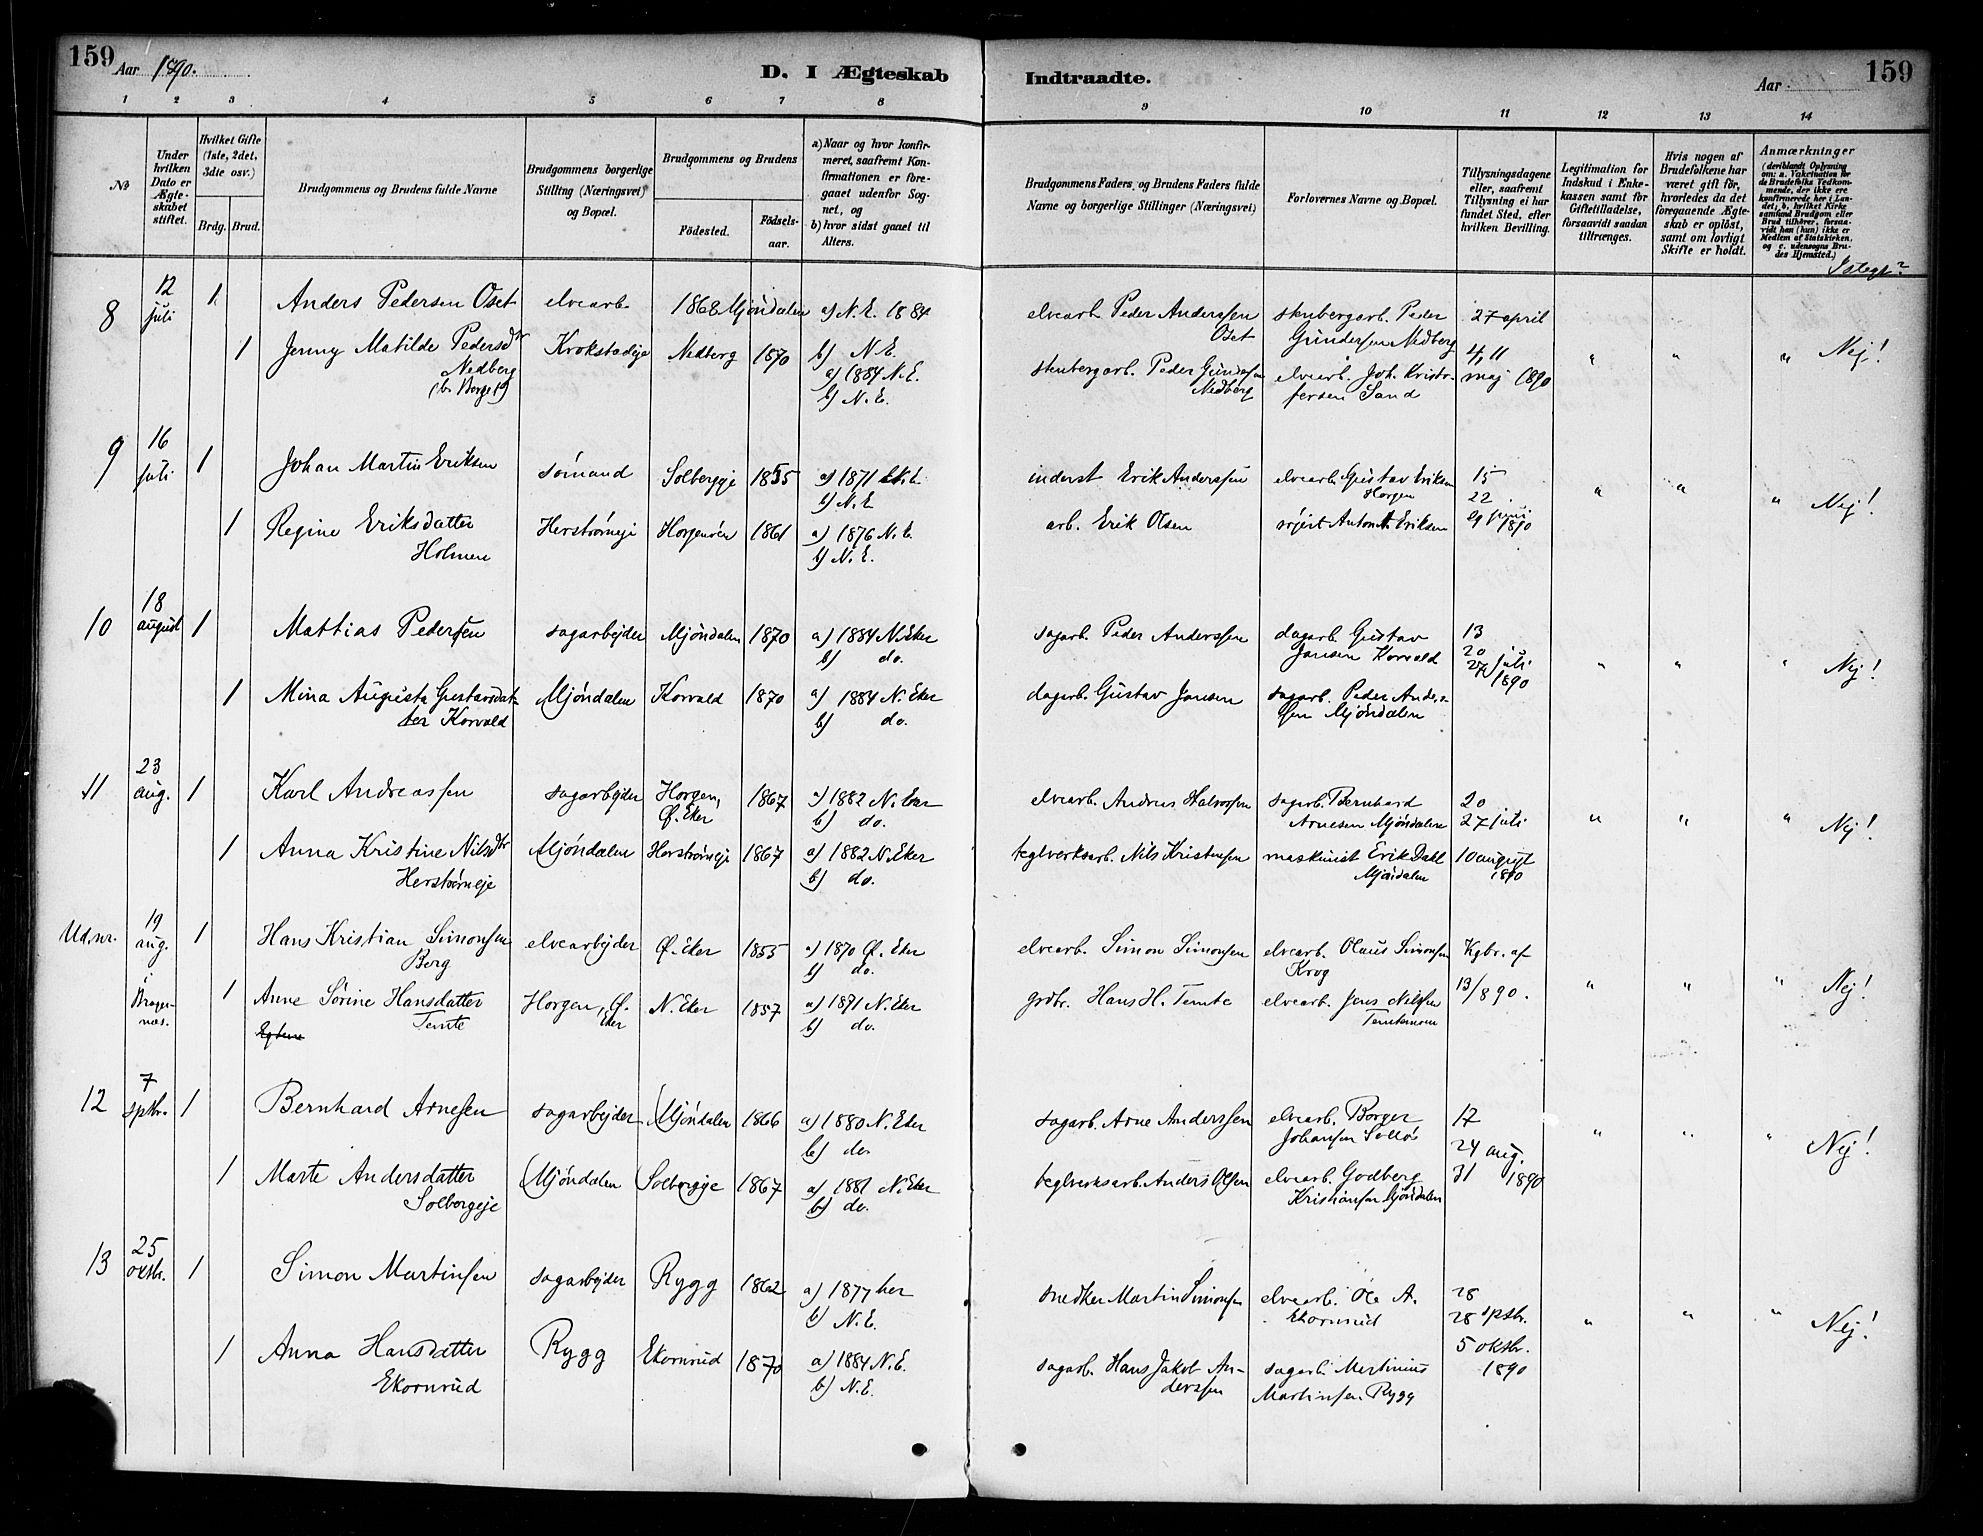 159
Aar 1890.
D. I Ægteskab
Indtraadte.
Aar
159
1 2 3 4 5 6 7 8 9 10 11 12 13 14
No
Under hvilken Dato er Ægteskabet stiftet.
Hvilket Gifte (1ste, 2det, 3dte osv.)
Brdg. Brud.
Brudgommens og Brudens fulde Navne
Brudgommens borgerlige Stilling (Næringsvei) og Bopæl.
Brudgommens og Brudens
Fødested.
Fødselsaar.
a) Naar og hvor konfirmeret, saafremt Konfirmationen er foregaaet udenfor Sognet, og
b) hvor sidst gaaet til Alters.
Brudgommens Faders og Brudens Faders fulde Navne og borgerlige Stillinger (Næringsvei)
Forlovernes Navne og Bopæl.
Tillysningsdagene eller, saafremt Tillysning ei har fundet Sted, efter hvilken Bevilling.
Legitimation for Indskud i Enkekassen samt for Giftetilladelse, forsaavidt saadan tiltrænges.
Hvis nogen af Brudefolkene har været gift før, hvorledes da det foregaaende Ægteskab er opløst, samt om lovligt Skifte er holdt.
Anmærkninger
(deriblandt Oplysning om: a. Vakcination for de Brudefolks Vedkommende, der ikke ere konfirmerede her i Landet, b. hvilket Kirkesamfund Brudgom eller Brud tilhører, forsaavidt han (hun) ikke er Medlem af Statskirken, og c. udensogns Brudes Hjemsted.)
8 12 juli 1 Anders Pedersen Oset elvearb. 1868 Mjöndalen a) N.E. 1884
elvearb. Peder Anderssen Oset
stenbergarb. Peder Gundersen Nedberg
27 april
1 Jenny Matilde Pedersdr Nedberg Krokstadeje Nedberg 1870 b) N.E.
a) 1884 N.E.
b) N.E.
stenbergarb. Peder Gundersen Nedberg
elvearb. Joh. Kristofersen Sand
4, 11 maj 1890
" " " Nej!
9 16 juli 1 Johan Martin Eriksen sömand Solbergeje 1855 a) 1871
b) N.E.
inderst Erik Anderssen
elvearb. Gustav Eriksen Horgen
15
22
29 juni 1890
1 Regine Eriksdatter Holmen Herströmeje Horgenöen 1861 a) 1876 N.E.
b) N.E.
arb. Erik Olsen
Anton Eriksen
" " " Nej!
10 18 august 1 Mattias Pedersen sagarbejder Mjöndalen 1870 a) 1884 N. Eker
b) do.
sagarb. Peder Anderssen
dagarb. Gustav Jansen Korvald
13
20
27 juli 1890
1 Mina Augusta Gustavsdatter Korvald Mjöndalen Korvald 1870 a) 1884 N. Eker
b) do.
dagarb. Gustav Jansen
sagarb. Peder Anderssen Mjöndalen
" " " Nej!
11 23 aug. 1 Karl Andreassen sagarbejder Horgen, Ø. Eker 1867 a) 1882 N. Eker
b) do.
elvearb. Andreas Halvorsen
sagarb. Bernhard Arnesen Mjöndalen
20
27 juli
1 Anna Kristine Nilsdtr Herströmeje Mjöndalen Herströmeje 1867 a) 1882 N. Eker
b) do.
teglverksarb. Nils Kristensen
maskinist Erik Dahl Mjöndalen
10 august 1890
" " " Nej!
Ud.nr. 19 aug. i Bragernæs. 1 Hans Kristian Simonsen Borg elvearbejder Ø. Eker 1855 a) 1870 Ø. Eker
b) do.
elvearb. Simon Simonsen
elvearb. Olaus Simonsen Krog
Kgbr. af
1 Anne Sörine Hansdatter Temte Horgen, Ø. Eker N. Eker 1857 a) 1871 N. Eker
b) do.
grdbr. Hans H. Temte
elvearb. Jens Nilssen Temtemoen
13/8 90.
" " " Nej!
12 7 sptbr. 1 Bernhard Arnesen sagarbejder Mjöndalen 1866 a) 1880 N. Eker
b) do
sagarb. Arne Anderssen
elvearb. Borger Johansen
17
24 aug.
1 Marte Andersdatter Solbergeje Mjöndalen Solbergeje 1867 a) 1881 N. Eker
b) do.
teglverksarb. Anders Olsen
elvearb. Godberg Kristiansen Mjöndalen
31 1890
" " " Nej!
13 25 oktbr. 1 Simon Martinsen sagarbejder Rygg 1862 a) 1877 her
b) N.E.
snedker Martin Simonsen
elvearb. Ole A. Ekornrud
28 sptbr.
5 oktbr.
1890
1 Anna Hansdatter Ekornrud Rygg Ekornrud 1870 a) 1884 N.E.
b) N.E.
sagarb. Hans Jakob Anderssen
sagarb. Martinius Martinsen Rygg
" " " Nej!